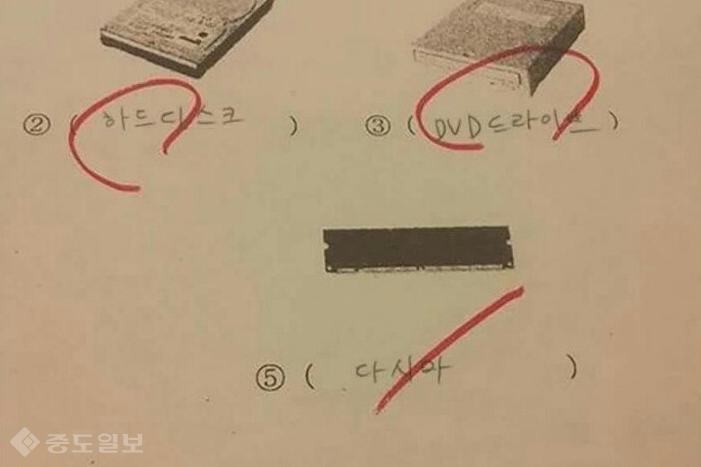 ② ( 하드디스크 ) ③ ( DVD드라이브 )
⑤ ( 다시마 )
중도일보